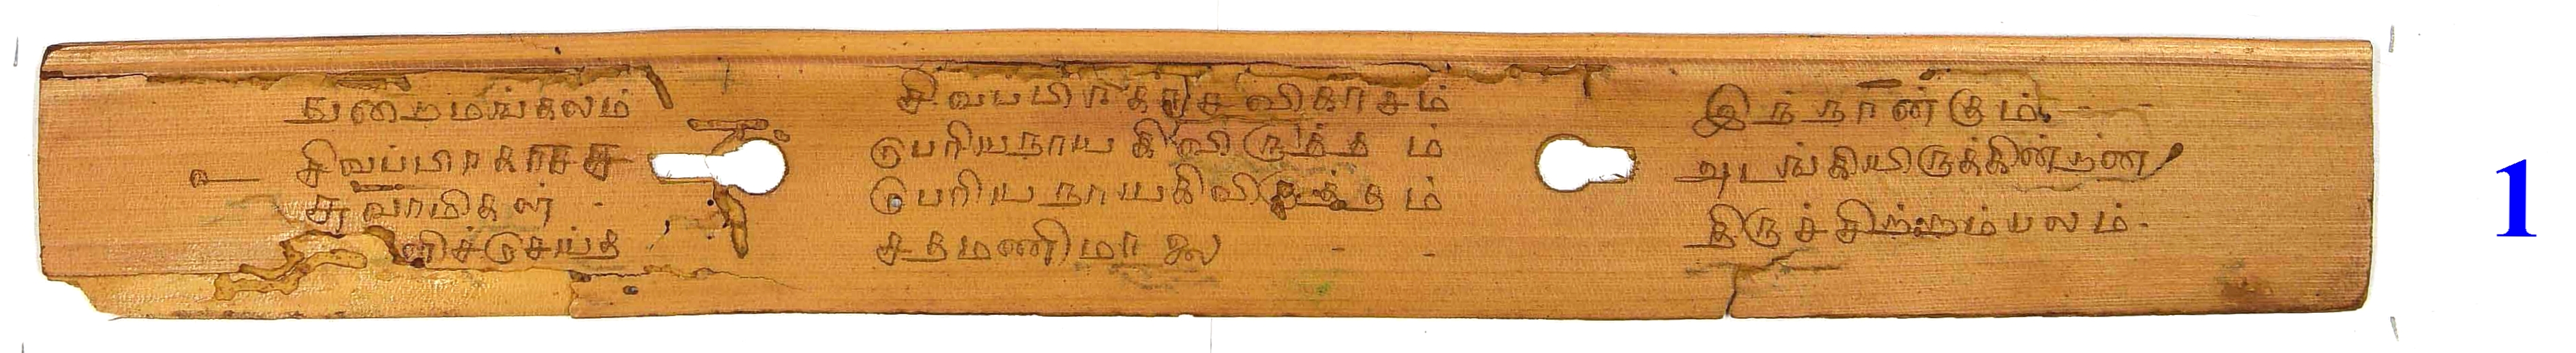 துறைமங்கலம்
உ சிவப்பிரகாச
சுவாமிகள்
ளிச்செய்த
சிவபபிரகாச விகாசம்
பெரியநாயகிவிருத்தம்
பெரியநாயகிவிருத்தம்
சதமணிமாலை - -
இந்நான்கும் - -
அடங்கியிருக்கின்றன
திருச்சிற்றம்பலம்.
1